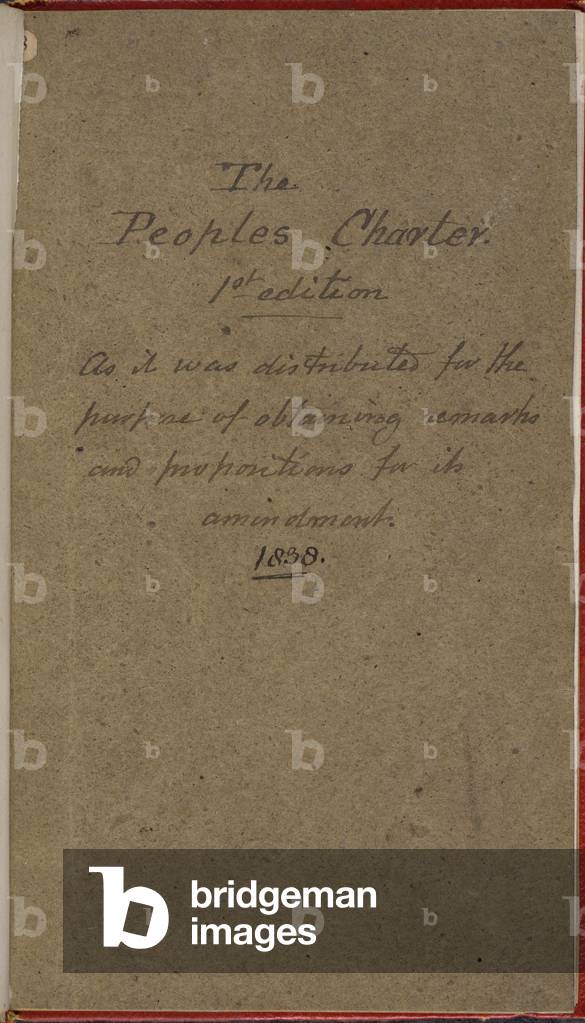 The
Peoples Charter.
1st edition
As it was distributed for the
purpose of obtaining remarks
and propositions for its
amendment.
1838.
b bridgeman
images